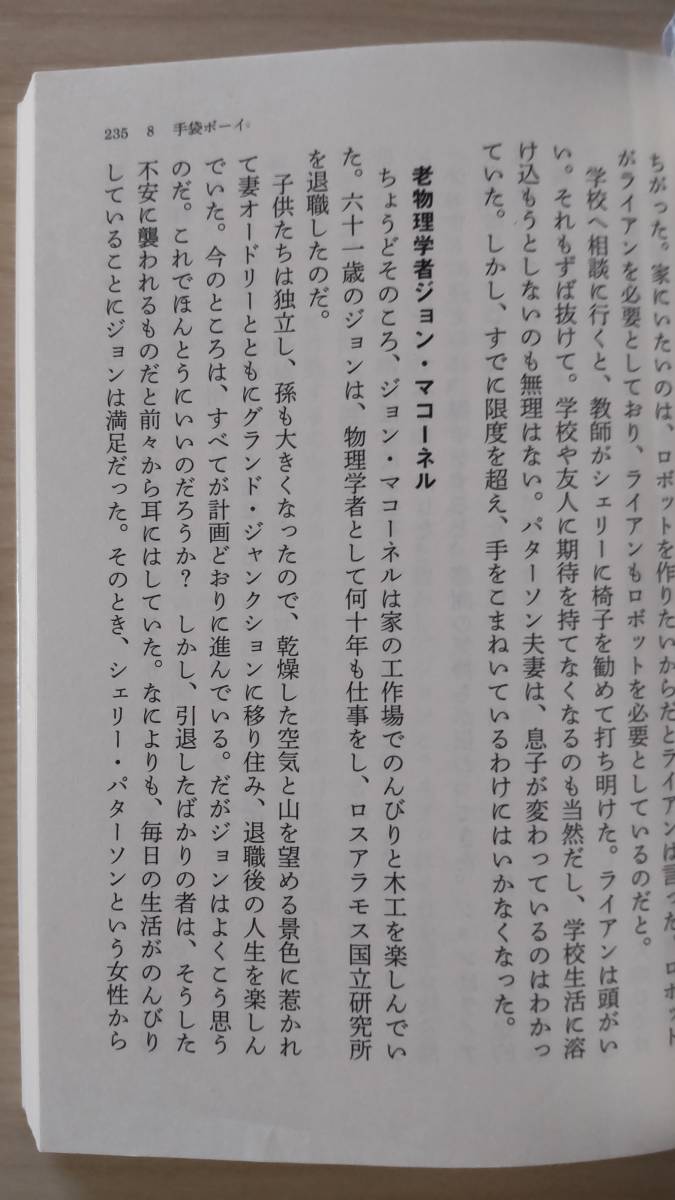 235　8　手袋ボーイ
ちがった。家にいたいのは、ロボットを作りたいからだとライアンは言った。ロボット
がライアンを必要としており、ライアンもロボットを必要としているのだと。
学校へ相談に行くと、教師がシェリーに椅子を勧めて打ち明けた。ライアンは頭がい
い。それもずば抜けて。学校や友人に期待を持てなくなるのも当然だし、学校生活に溶
け込もうとしないのも無理はない。パターソン夫妻は、息子が変わっているのはわかっ
ていた。しかし、すでに限度を超え、手をこまねいているわけにはいかなくなった。
老物理学者ジョン・マコーネル
ちょうどそのころ、ジョン・マコーネルは家の工作場でのんびりと木工を楽しんでい
た。六十一歳のジョンは、物理学者として何十年も仕事をし、ロスアラモス国立研究所
を退職したのだ。
子供たちは独立し、孫も大きくなったので、乾燥した空気と山を望める景色に惹かれ
て妻オードリーとともにグランド・ジャンクションに移り住み、退職後の人生を楽しん
でいた。今のところは、すべてが計画どおりに進んでいる。だがジョンはよくこう思う
のだ。これでほんとうにいいのだろうか？　しかし、引退したばかりの者は、そうした
不安に襲われるものだと前々から耳にはしていた。なによりも、毎日の生活がのんびり
していることにジョンは満足だった。そのとき、シェリー・パターソンという女性から